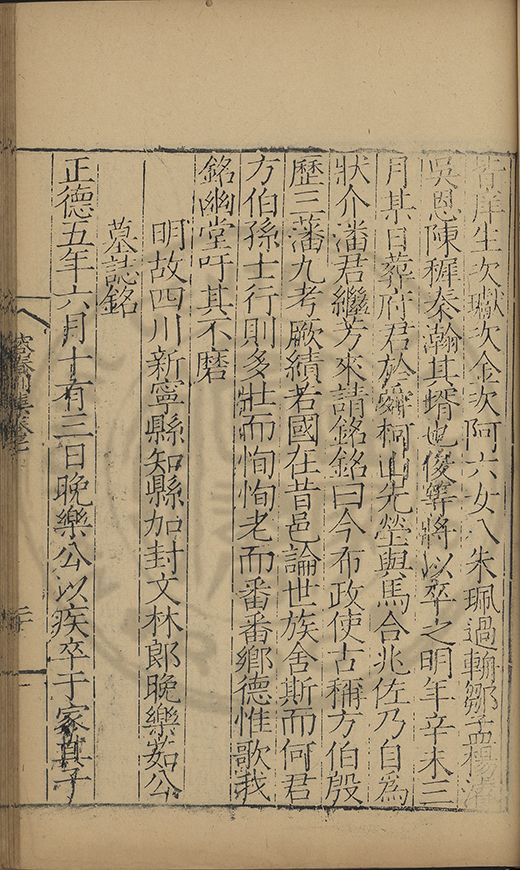 庠生次瓛次金次阿六女八朱珮過輪鄒孟楊
吳恩陳穉秦瀚其壻也俊等將以卒之明年辛未三
月某日葬府君於桐山先塋與馬合兆佐乃自為
狀介潘君繼芳來請銘銘曰今布政使古稱方伯殷
歷三藩九考厥績若國在昔邑論世族舍斯而何君
方伯孫士行則多壯而恂恂老而番番鄉德惟歌我
銘幽堂吁其不磨
明故四川新寧縣知縣加封文林郎晚樂茹公
墓誌銘
正德五年六月十有三日晚樂公以疾卒于家其子